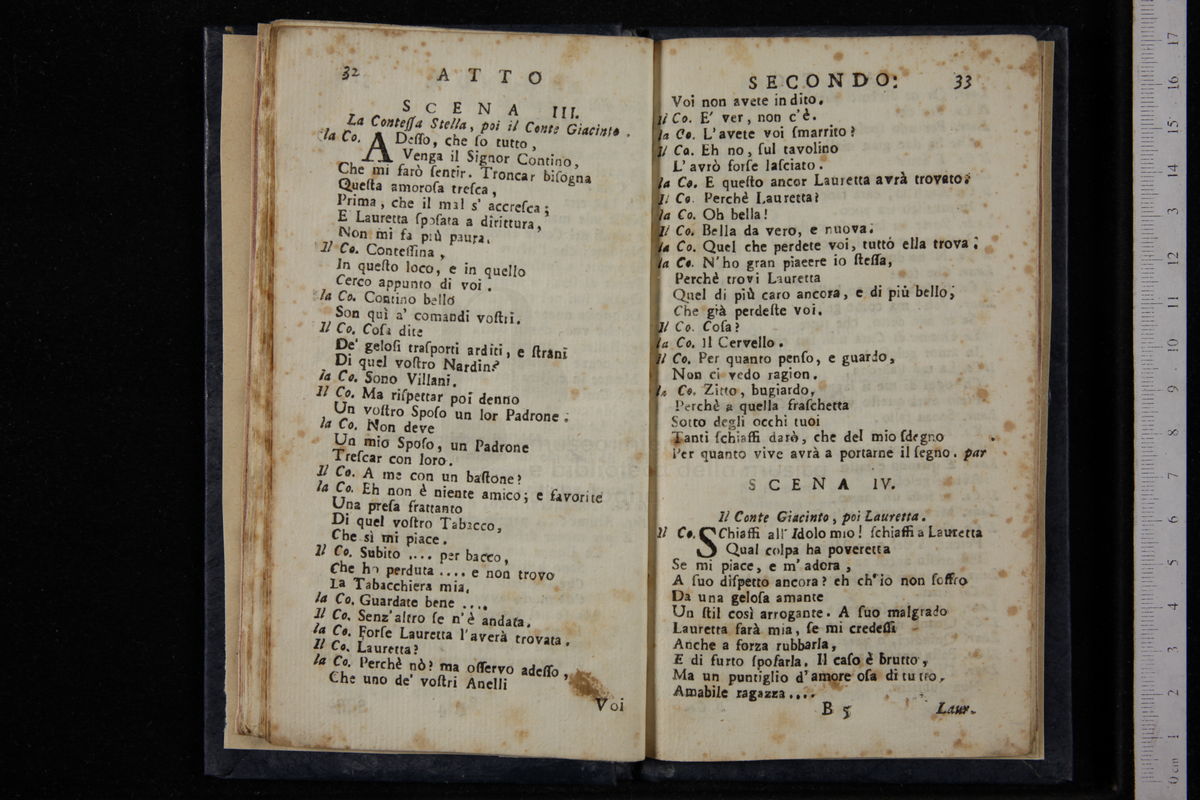 32 ATTO
SCENA III.
La Conteſſa Stella, poi il Conte Giacinto.
la Co. ADeſſo, che ſo tutto,
Venga il Signor Contino,
Che mi farò ſentir. Troncar biſogna
Queſta amoroſa treſca,
Prima, che il mal s' accreſca;
E Lauretta ſpoſata a dirittura,
Non mi fa più paura.
Il Co. Conteſſina,
In queſto loco, e in quello
Cerco appunto di voi.
la Co. Contino bello
Son quì a' comandi voſtri.
Il Co. Coſa dite
De' geloſi traſporti arditi, e ſtrani
Di quel voſtro Nardin?
la Co. Sono Villani.
Il Co. Ma riſpettar poi denno
Un voſtro Spoſo un lor Padrone.
la Co. Non deve
Un mio Spoſo, un Padrone
Treſcar con loro.
Il Co. A me con un baſtone?
la Co. Eh non è niente amico; e favorite
Una preſa frattanto
Di quel voſtro Tabacco,
Che sì mi piace.
Il Co. Subito .... per bacco,
Che ho perduta .... e non trovo
La Tabacchiera mia.
la Co. Guardate bene ....
Il Co. Senz' altro ſe n'è andata.
la Co. Forſe Lauretta l'averà trovata.
Il Co. Lauretta?
la Co. Perchè nò? ma oſſervo adeſſo,
Che uno de' voſtri Anelli
Voi
SECONDO. 33
Voi non avete in dito.
Il Co. E' ver, non c'è.
la Co. L'avete voi ſmarrito?
Il Co. Eh no, ſul tavolino
L' avrò forſe laſciato.
la Co. E queſto ancor Lauretta avrà trovato.
Il Co. Perchè Lauretta?
la Co. Oh bella!
Il Co. Bella da vero, e nuova.
la Co. Quel che perdete voi, tuttó ella trova.
la Co. N'ho gran piacere io ſteſſa,
Perchè trovi Lauretta
Quel di più caro ancora, e di più bello,
Che già perdeſte voi.
Il Co. Coſa?
la Co. Il Cervello.
Il Co. Per quanto penſo, e guardo,
Non ci vedo ragion.
la Co. Zitto, bugiardo,
Perchè a quella fraſchetta
Sotto degli occhi tuoi
Tanti ſchiaffi darò, che del mio ſdegno
Per quanto vive avrà a portarne il ſegno. par
SCENA IV.
Il Conte Giacinto, poi Lauretta.
Il Co. SChiaffi all' Idolo mio! ſchiaffi a Lauretta
Qual colpa ha poveretta
Se mi piace, e m' adora,
A ſuo diſpetto ancora? eh ch' io non ſoffro
Da una geloſa amante
Un ſtil così arrogante. A ſuo malgrado
Lauretta ſarà mia, ſe mi credeſſi
Anche a forza rubbarla,
E di furto ſpoſarla. Il caſo è brutto,
Ma un puntiglio d'amore oſa di tutto.
Amabile ragazza ....
B 5 Laur.